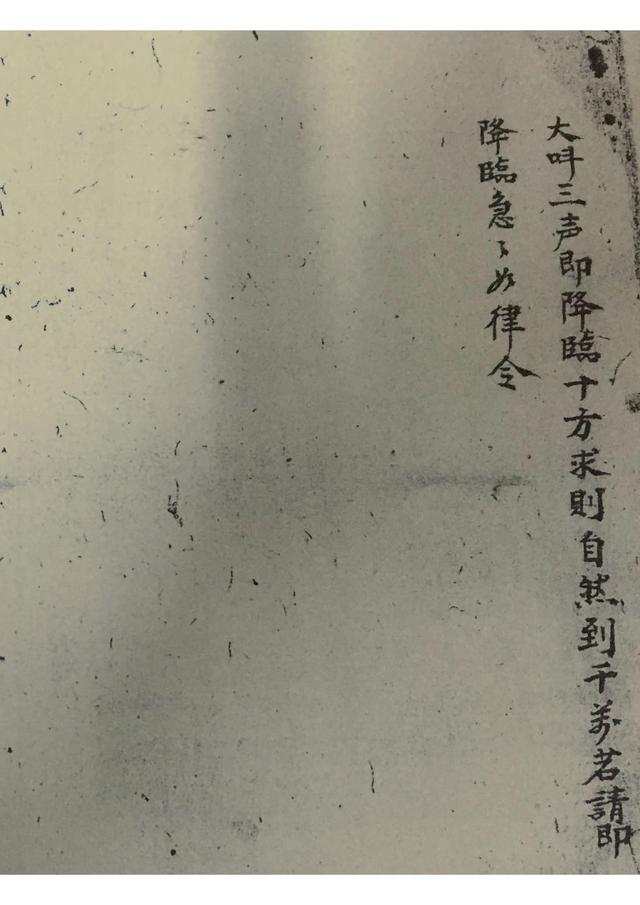 大呌三声即降臨十方求則自然到千萬若請即
降臨急〻如律令